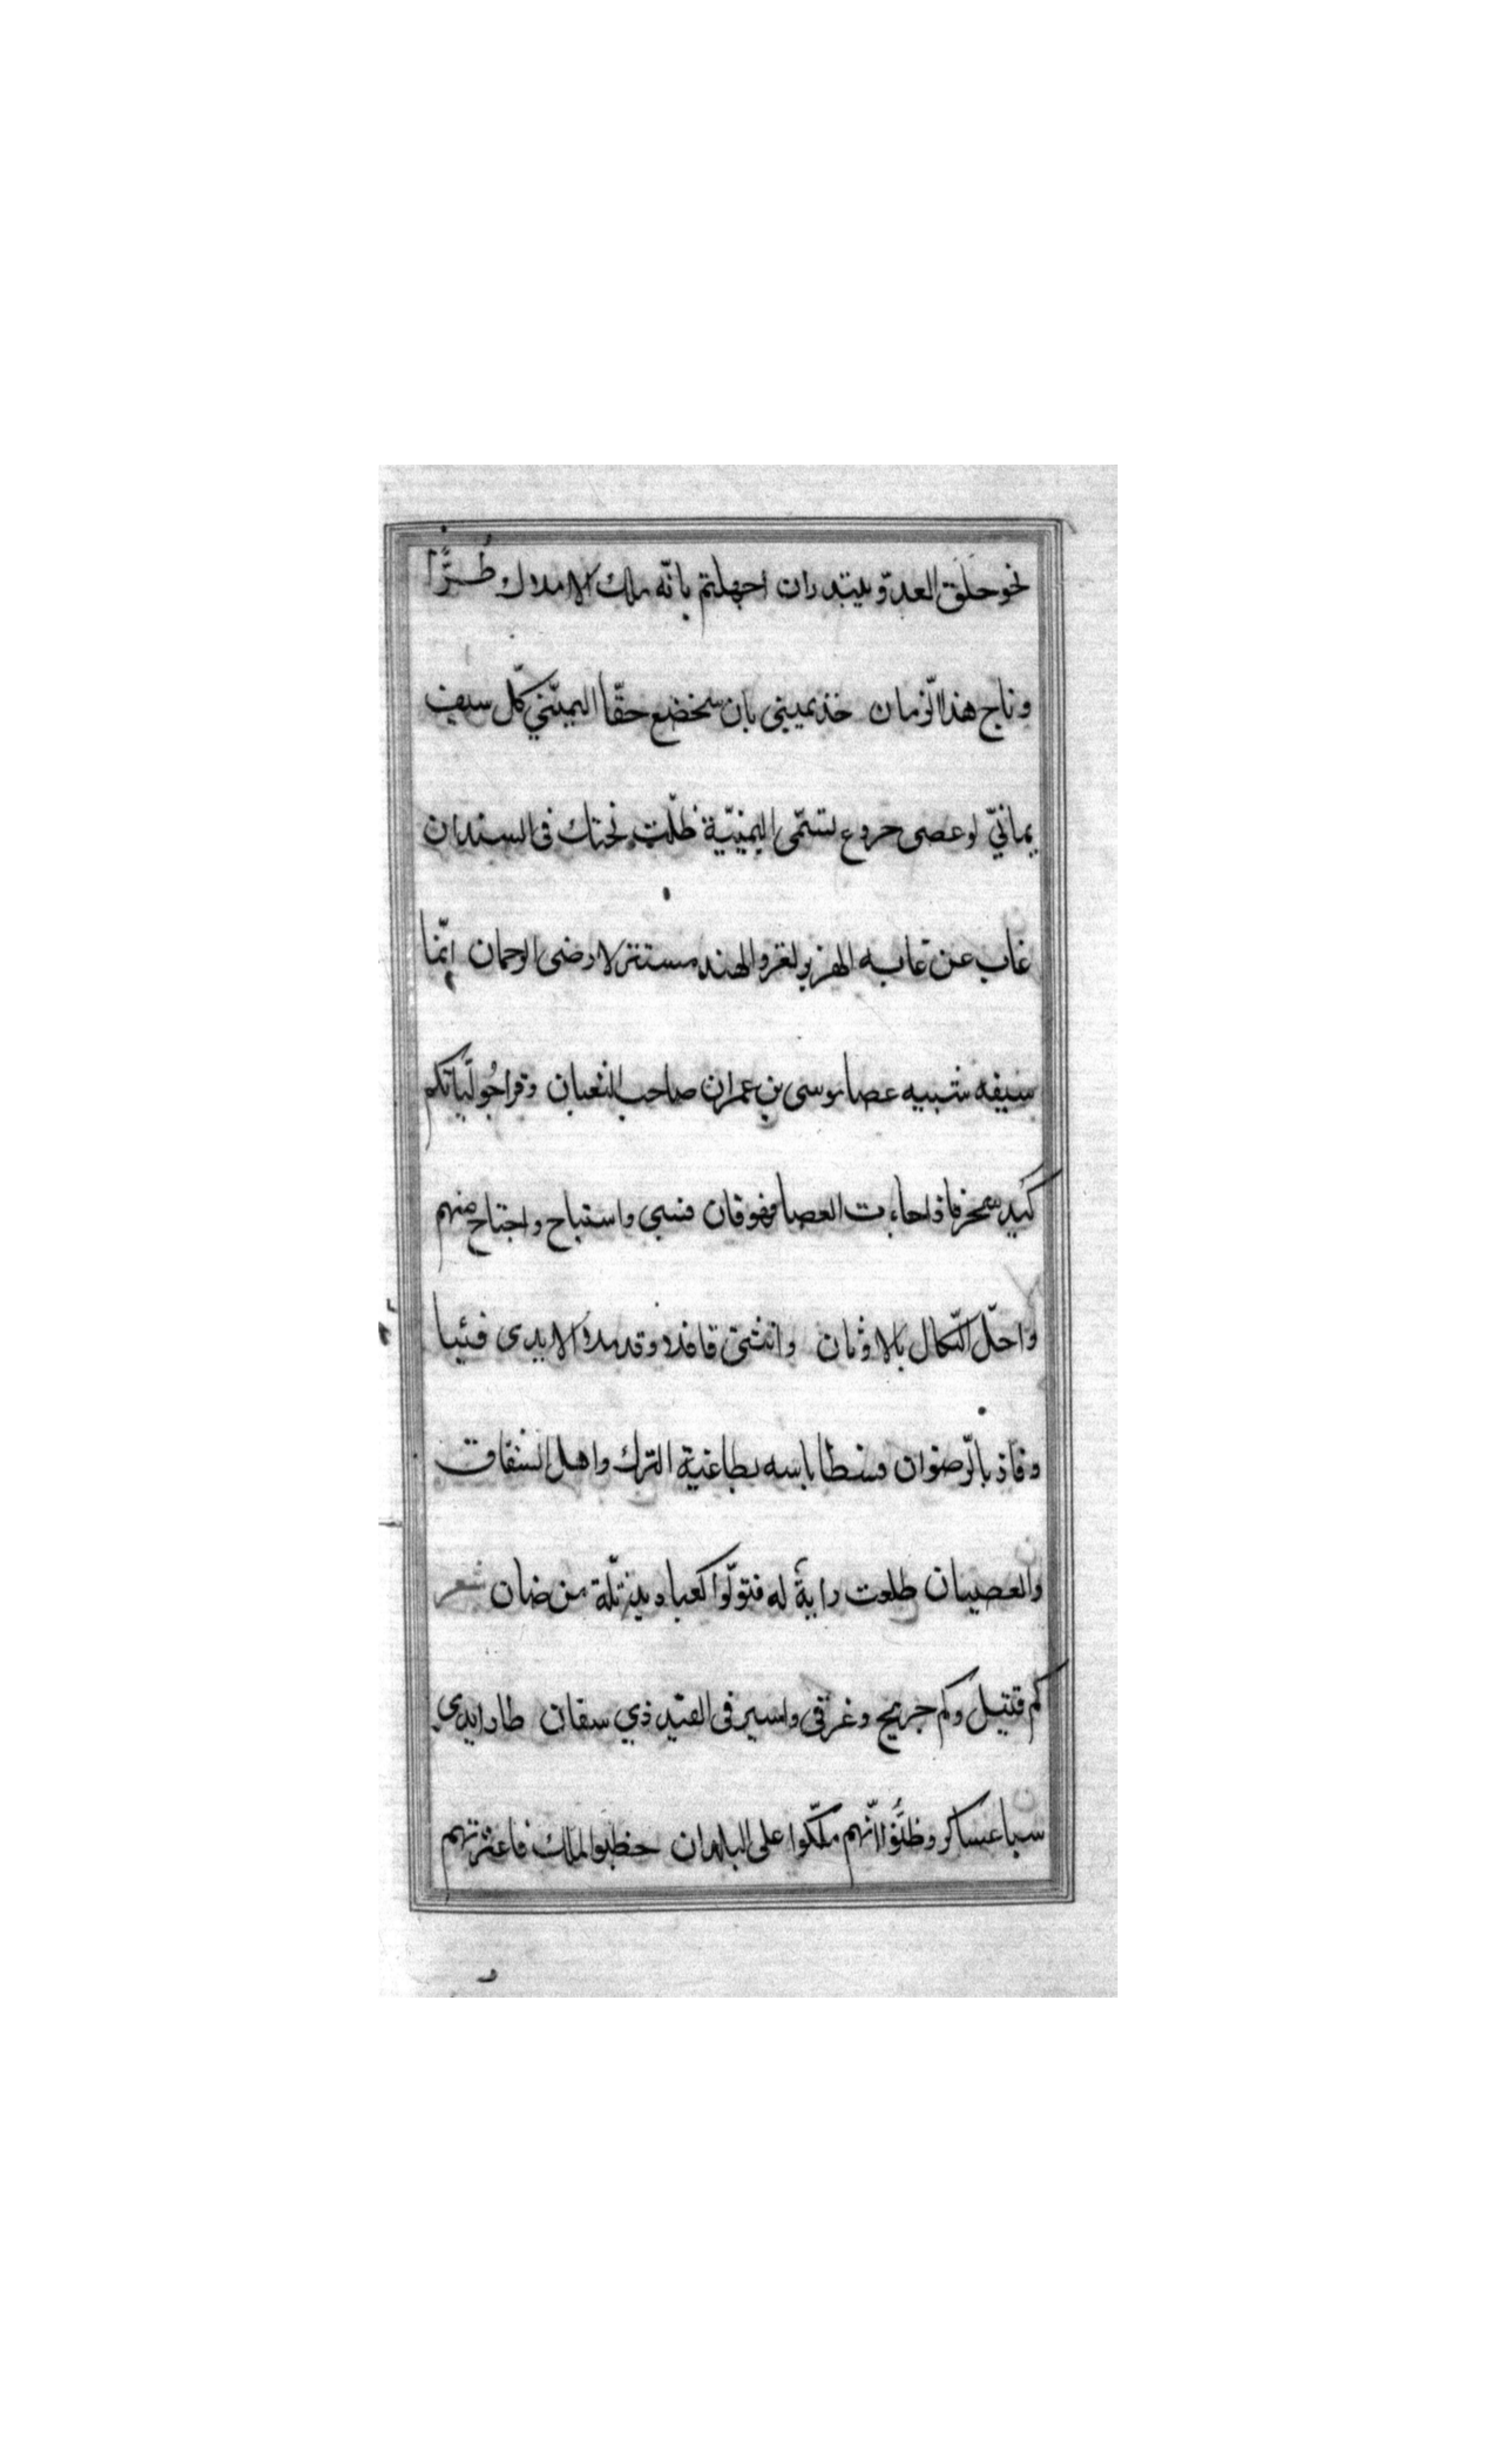 نحو حلق العدوّ يبتدران اجهلتم بانّه ملك الاملاك طُرًّا
وتاج هذا الزّمان خذ يميني بان سيخضع حقّا اليمينّي كلّ سيف
يمانيّ لو عصى خروع تسمّى اليمينيّة ظلّت تحتك فى السندان
غاب عن غابه الهزبر لغزو الهند مستنزلا رضى الرحمان انّما
سيفه شبيه عصا موسى بن عمران صاحب الثعبان وقراجُوليّاتكم
كيد سحر فاذا جاءت العصا فهو فان فسبى واستباح واجتاح منهم
واحلّ النّكال بالاوثان وانثنى قافلا وقد ملا الايدى فيئا
وفاز بالرّضوان فسطا باسه بطاغية الترك واهل الشقاق
والعصيان طلعت راية له فتولّوا كعباديد ثلّة من ضان شعر
كم قتيل وكم جريح وغرقى واسير فى القيد ذي سقان طار ايدى
سبا عساكر وظنّوا انّهم ملّكوا على البلدان خطبوا الملك فاعترتهم